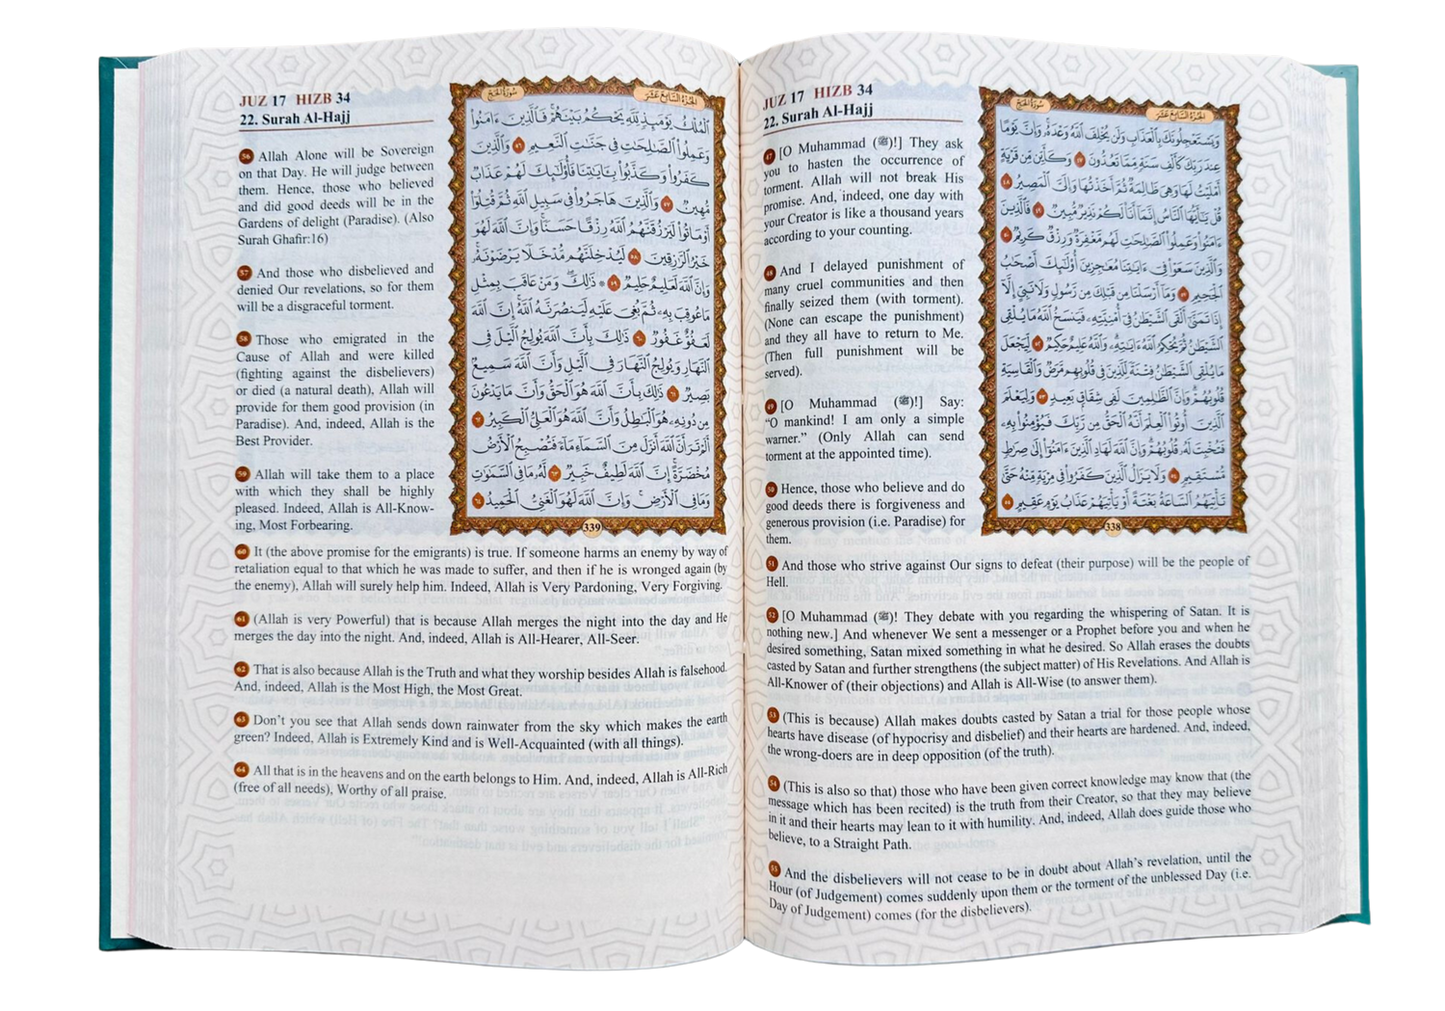 JUZ 17 HIZB 34
22. Surah Al-Hajj
سُورَةُ الحَجّ
الجُزْءُ السَّابِعَ عَشَرَ
وَيَسْتَعْجِلُونَكَ بِٱلْعَذَابِ وَلَن يُخْلِفَ ٱللَّهُ وَعْدَهُۥ وَإِنَّ يَوْمًا
عِندَ رَبِّكَ كَأَلْفِ سَنَةٍ مِّمَّا تَعُدُّونَ ٤٧ وَكَأَيِّن مِّن قَرْيَةٍ
أَمْلَيْتُ لَهَا وَهِىَ ظَالِمَةٌ ثُمَّ أَخَذْتُهَا وَإِلَىَّ ٱلْمَصِيرُ ٤٨
قُلْ يَٰٓأَيُّهَا ٱلنَّاسُ إِنَّمَآ أَنَا۠ لَكُمْ نَذِيرٌ مُّبِينٌ ٤٩ فَٱلَّذِينَ
ءَامَنُوا۟ وَعَمِلُوا۟ ٱلصَّٰلِحَٰتِ لَهُم مَّغْفِرَةٌ وَرِزْقٌ كَرِيمٌ ٥٠
وَٱلَّذِينَ سَعَوْا۟ فِىٓ ءَايَٰتِنَا مُعَٰجِزِينَ أُو۟لَٰٓئِكَ أَصْحَٰبُ
ٱلْجَحِيمِ ٥١ وَمَآ أَرْسَلْنَا مِن قَبْلِكَ مِن رَّسُولٍ وَلَا نَبِىٍّ إِلَّآ
إِذَا تَمَنَّىٰٓ أَلْقَى ٱلشَّيْطَٰنُ فِىٓ أُمْنِيَّتِهِۦ فَيَنسَخُ ٱللَّهُ مَا يُلْقِى
ٱلشَّيْطَٰنُ ثُمَّ يُحْكِمُ ٱللَّهُ ءَايَٰتِهِۦ وَٱللَّهُ عَلِيمٌ حَكِيمٌ ٥٢ لِّيَجْعَلَ
مَا يُلْقِى ٱلشَّيْطَٰنُ فِتْنَةً لِّلَّذِينَ فِى قُلُوبِهِم مَّرَضٌ وَٱلْقَاسِيَةِ
قُلُوبُهُمْ وَإِنَّ ٱلظَّٰلِمِينَ لَفِى شِقَاقٍۭ بَعِيدٍ ٥٣ وَلِيَعْلَمَ
ٱلَّذِينَ أُوتُوا۟ ٱلْعِلْمَ أَنَّهُ ٱلْحَقُّ مِن رَّبِّكَ فَيُؤْمِنُوا۟ بِهِۦ
فَتُخْبِتَ لَهُۥ قُلُوبُهُمْ وَإِنَّ ٱللَّهَ لَهَادِ ٱلَّذِينَ ءَامَنُوٓا۟ إِلَىٰ صِرَٰطٍ
مُّسْتَقِيمٍ ٥٤ وَلَا يَزَالُ ٱلَّذِينَ كَفَرُوا۟ فِى مِرْيَةٍ مِّنْهُ حَتَّىٰ
تَأْتِيَهُمُ ٱلسَّاعَةُ بَغْتَةً أَوْ يَأْتِيَهُمْ عَذَابُ يَوْمٍ عَقِيمٍ ٥٥
338
47 [O Muhammad (ﷺ)!] They ask
you to hasten the occurrence of
torment. Allah will not break His
promise. And, indeed, one day with
your Creator is like a thousand years
according to your counting.
48 And I delayed punishment of
many cruel communities and then
finally seized them (with torment).
(None can escape the punishment)
and they all have to return to Me.
(Then full punishment will be
served).
49 [O Muhammad (ﷺ)!] Say:
“O mankind! I am only a simple
warner.” (Only Allah can send
torment at the appointed time).
50 Hence, those who believe and do
good deeds there is forgiveness and
generous provision (i.e. Paradise) for
them.
51 And those who strive against Our signs to defeat (their purpose) will be the people of
Hell.
52 [O Muhammad (ﷺ)! They debate with you regarding the whispering of Satan. It is
nothing new.] And whenever We sent a messenger or a Prophet before you and when he
desired something, Satan mixed something in what he desired. So Allah erases the doubts
casted by Satan and further strengthens (the subject matter) of His Revelations. And Allah is
All-Knower of (their objections) and Allah is All-Wise (to answer them).
53 (This is because) Allah makes doubts casted by Satan a trial for those people whose
hearts have disease (of hypocrisy and disbelief) and their hearts are hardened. And, indeed,
the wrong-doers are in deep opposition (of the truth).
54 (This is also so that) those who have been given correct knowledge may know that (the
message which has been recited) is the truth from their Creator, so that they may believe
in it and their hearts may lean to it with humility. And, indeed, Allah does guide those who
believe, to a Straight Path.
55 And the disbelievers will not cease to be in doubt about Allah’s revelation, until the
Hour (of Judgement) comes suddenly upon them or the torment of the unblessed Day (i.e.
Day of Judgement) comes (for the disbelievers).
JUZ 17 HIZB 34
22. Surah Al-Hajj
سُورَةُ الحَجّ
الجُزْءُ السَّابِعَ عَشَرَ
ٱلْمُلْكُ يَوْمَئِذٍ لِّلَّهِ يَحْكُمُ بَيْنَهُمْ فَٱلَّذِينَ ءَامَنُوا۟
وَعَمِلُوا۟ ٱلصَّٰلِحَٰتِ فِى جَنَّٰتِ ٱلنَّعِيمِ ٥٦ وَٱلَّذِينَ
كَفَرُوا۟ وَكَذَّبُوا۟ بِـَٔايَٰتِنَا فَأُو۟لَٰٓئِكَ لَهُمْ عَذَابٌ
مُّهِينٌ ٥٧ وَٱلَّذِينَ هَاجَرُوا۟ فِى سَبِيلِ ٱللَّهِ ثُمَّ قُتِلُوٓا۟
أَوْ مَاتُوا۟ لَيَرْزُقَنَّهُمُ ٱللَّهُ رِزْقًا حَسَنًا وَإِنَّ ٱللَّهَ لَهُوَ
خَيْرُ ٱلرَّٰزِقِينَ ٥٨ لَيُدْخِلَنَّهُم مُّدْخَلًا يَرْضَوْنَهُۥ
وَإِنَّ ٱللَّهَ لَعَلِيمٌ حَلِيمٌ ٥٩ ۞ ذَٰلِكَ وَمَنْ عَاقَبَ بِمِثْلِ
مَا عُوقِبَ بِهِۦ ثُمَّ بُغِىَ عَلَيْهِ لَيَنصُرَنَّهُ ٱللَّهُ إِنَّ ٱللَّهَ
لَعَفُوٌّ غَفُورٌ ٦٠ ذَٰلِكَ بِأَنَّ ٱللَّهَ يُولِجُ ٱلَّيْلَ فِى
ٱلنَّهَارِ وَيُولِجُ ٱلنَّهَارَ فِى ٱلَّيْلِ وَأَنَّ ٱللَّهَ سَمِيعٌۢ
بَصِيرٌ ٦١ ذَٰلِكَ بِأَنَّ ٱللَّهَ هُوَ ٱلْحَقُّ وَأَنَّ مَا يَدْعُونَ
مِن دُونِهِۦ هُوَ ٱلْبَٰطِلُ وَأَنَّ ٱللَّهَ هُوَ ٱلْعَلِىُّ ٱلْكَبِيرُ ٦٢
أَلَمْ تَرَ أَنَّ ٱللَّهَ أَنزَلَ مِنَ ٱلسَّمَآءِ مَآءً فَتُصْبِحُ ٱلْأَرْضُ
مُخْضَرَّةً إِنَّ ٱللَّهَ لَطِيفٌ خَبِيرٌ ٦٣ لَّهُۥ مَا فِى ٱلسَّمَٰوَٰتِ
وَمَا فِى ٱلْأَرْضِ وَإِنَّ ٱللَّهَ لَهُوَ ٱلْغَنِىُّ ٱلْحَمِيدُ ٦٤
339
56 Allah Alone will be Sovereign
on that Day. He will judge between
them. Hence, those who believed
and did good deeds will be in the
Gardens of delight (Paradise). (Also
Surah Ghafir:16)
57 And those who disbelieved and
denied Our revelations, so for them
will be a disgraceful torment.
58 Those who emigrated in the
Cause of Allah and were killed
(fighting against the disbelievers)
or died (a natural death), Allah will
provide for them good provision (in
Paradise). And, indeed, Allah is the
Best Provider.
59 Allah will take them to a place
with which they shall be highly
pleased. Indeed, Allah is All-Know-
ing, Most Forbearing.
60 It (the above promise for the emigrants) is true. If someone harms an enemy by way of
retaliation equal to that which he was made to suffer, and then if he is wronged again (by
the enemy), Allah will surely help him. Indeed, Allah is Very Pardoning, Very Forgiving.
61 (Allah is very Powerful) that is because Allah merges the night into the day and He
merges the day into the night. And, indeed, Allah is All-Hearer, All-Seer.
62 That is also because Allah is the Truth and what they worship besides Allah is falsehood.
And, indeed, Allah is the Most High, the Most Great.
63 Don’t you see that Allah sends down rainwater from the sky which makes the earth
green? Indeed, Allah is Extremely Kind and is Well-Acquainted (with all things).
64 All that is in the heavens and on the earth belongs to Him. And, indeed, Allah is All-Rich
(free of all needs), Worthy of all praise.